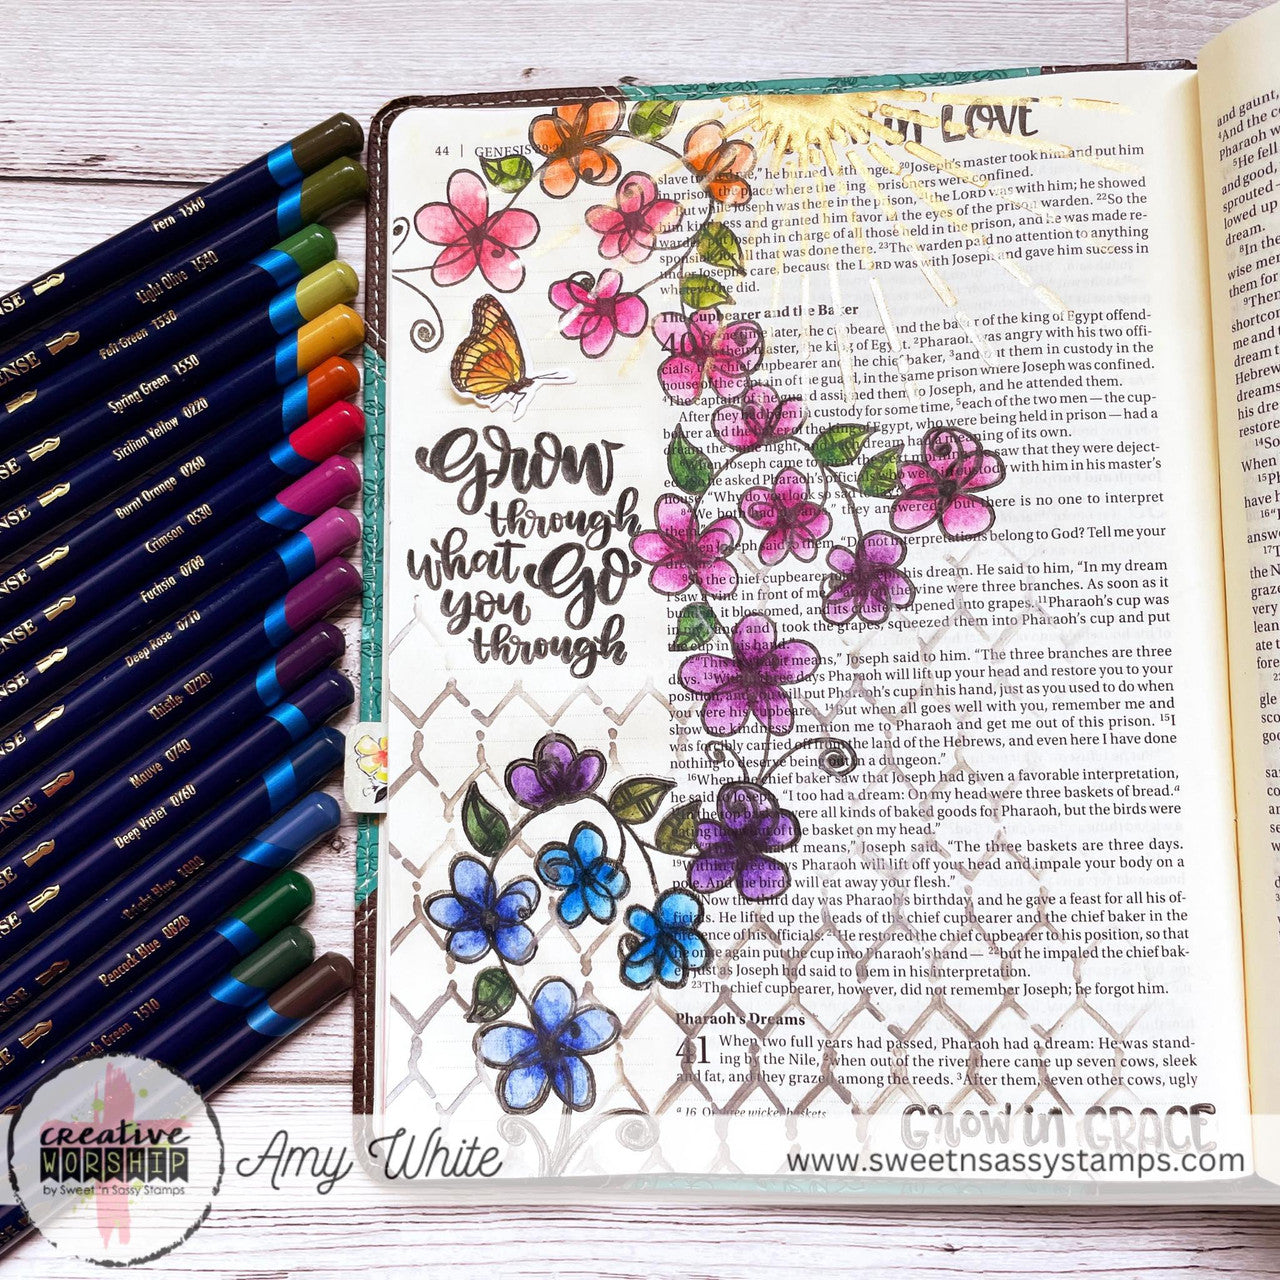 in LOVE
44 | GENESIS 39:
²⁰Joseph's master took him and put him
in prison, the place where the king's prisoners were confined.
But while Joseph was there in the prison, ²¹the LORD was with him; he showed
him kindness and granted him favor in the eyes of the prison warden. ²²So the
warden put Joseph in charge of all those held in the prison, and he was made re-
sponsible for all that was done there. ²³The warden paid no attention to anything
under Joseph's care, because the LORD was with Joseph and gave him success in
whatever he did.
The Cupbearer and the Baker
40 Some time later, the cupbearer and the baker of the king of Egypt offend-
ed their master, the king of Egypt. ²Pharaoh was angry with his two offi-
cials, the chief cupbearer and the chief baker, ³and put them in custody in the
house of the captain of the guard, in the same prison where Joseph was confined.
⁴The captain of the guard assigned them to Joseph, and he attended them.
After they had been in custody for some time, ⁵each of the two men — the cup-
bearer and the baker of the king of Egypt, who were being held in prison — had a
dream the same night, and each dream had a meaning of its own.
⁶When Joseph came to saw that they were deject-
ed. he asked Pharaoh's officials who were in custody with him in his master's
house, "Why do you look so sad
⁸"We both had dreams," they answered, but there is no one to interpret
them."
Then Joseph said to them, "Do not interpretations belong to God? Tell me your
dreams."
⁹So the chief cupbearer told Joseph his dream. He said to him, "In my dream
I saw a vine in front of me, and on the vine were three branches. As soon as it
budded, it blossomed, and its clusters ripened into grapes. ¹¹Pharaoh's cup was
in my hand, and I took the grapes, squeezed them into Pharaoh's cup and put
the cup in his hand."
¹²"This is what it means," Joseph said to him. "The three branches are three
days. ¹³Within three days Pharaoh will lift up your head and restore you to your
position, and you will put Pharaoh's cup in his hand, just as you used to do when
you were his cupbearer. ¹⁴But when all goes well with you, remember me and
show me kindness; mention me to Pharaoh and get me out of this prison. ¹⁵I
was forcibly carried off from the land of the Hebrews, and even here I have done
nothing to deserve being put in a dungeon."
¹⁶When the chief baker saw that Joseph had given a favorable interpretation,
he said to Joseph, "I too had a dream: On my head were three baskets of bread.ᵃ
In the top basket were all kinds of baked goods for Pharaoh, but the birds were
eating them out of the basket on my head."
what it means," Joseph said. "The three baskets are three days.
¹⁹Within three days Pharaoh will lift off your head and impale your body on a
pole. And the birds will eat away your flesh."
Now the third day was Pharaoh's birthday, and he gave a feast for all his of-
ficials. He lifted up the heads of the chief cupbearer and the chief baker in the
presence of his officials: ²¹He restored the chief cupbearer to his position, so that
he once again put the cup into Pharaoh's hand — ²²but he impaled the chief bak-
er, just as Joseph had said to them in his interpretation.
²³The chief cupbearer, however, did not remember Joseph; he forgot him.
Pharaoh's Dreams
41 When two full years had passed, Pharaoh had a dream: He was stand-
ing by the Nile, ²when out of the river there came up seven cows, sleek
and fat, and they grazed among the reeds. ³After them, seven other cows, ugly
ᵃ 16 Or three wicker baskets
Grow in GRACE
Grow
through
what Go
you
through
Fern 1560
Light Olive 1540
Felt Green 1530
Spring Green 1550
Sicilian Yellow 0220
Burnt Orange 0260
Crimson 0530
Fuchsia 0700
Deep Rose 0710
Thistle 0720
Mauve 0740
Deep Violet 0760
Bright Blue 1000
Peacock Blue 0820
Green 1510
creative
WORSHIP
by Sweet 'n Sassy Stamps
Amy White
www.sweetnsassystamps.com
and gaunt,
⁴And the co
Pharaoh w
⁵He fell
and good,
sprouted
lowed up
dream.
⁸In the
wise men
them for
⁹Then
shortcon
me and
dream t
Hebrew
his dre
restore
¹⁴So
When
¹⁵Ph
have
¹⁶"I
answe
¹⁷T
the N
graze
very
lean
ate u
fore